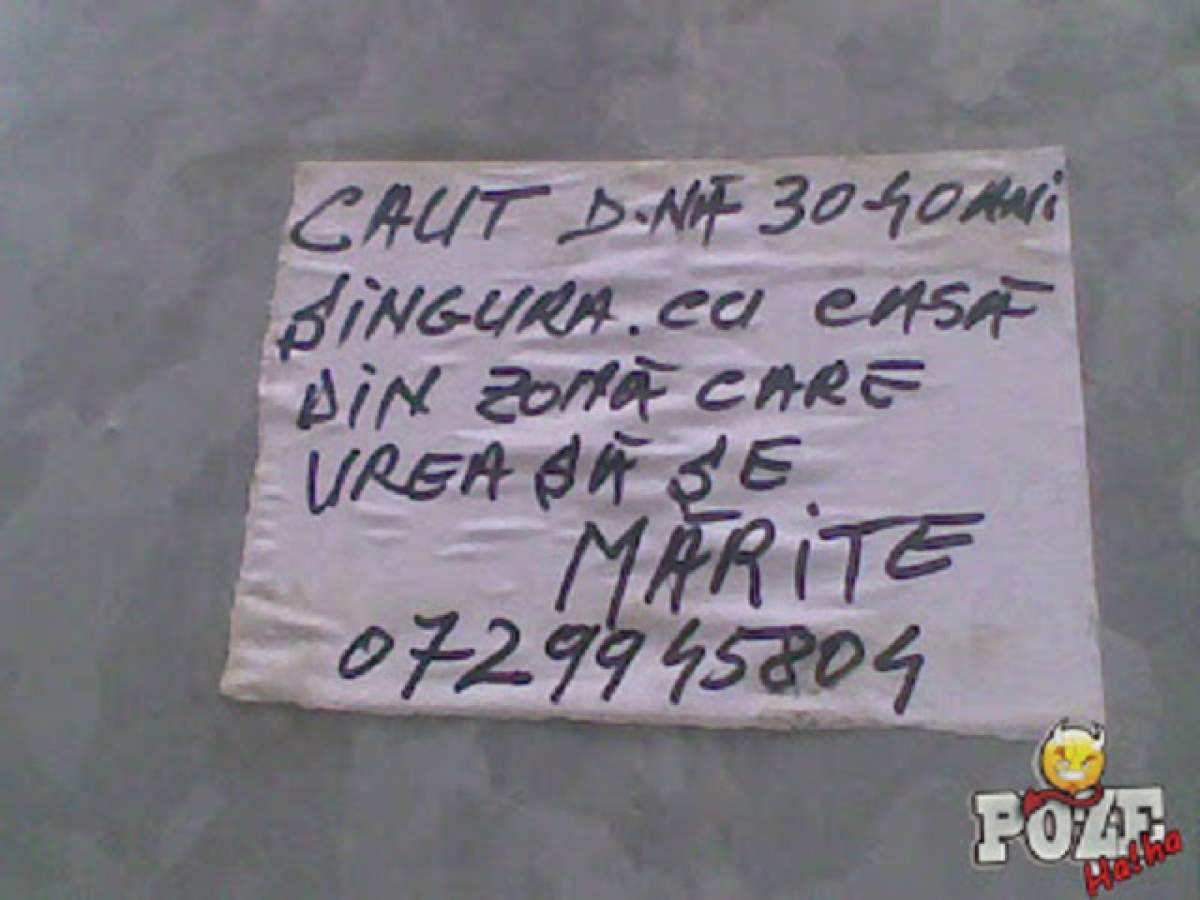 CAUT D-NĂ 30-40 ANi
ŞiNGURA. CU CASĂ
DiN ZONĂ CARE
VREA ŞĂ ŞE
MĂRiTE
0729945804
POZE
Ha!ha